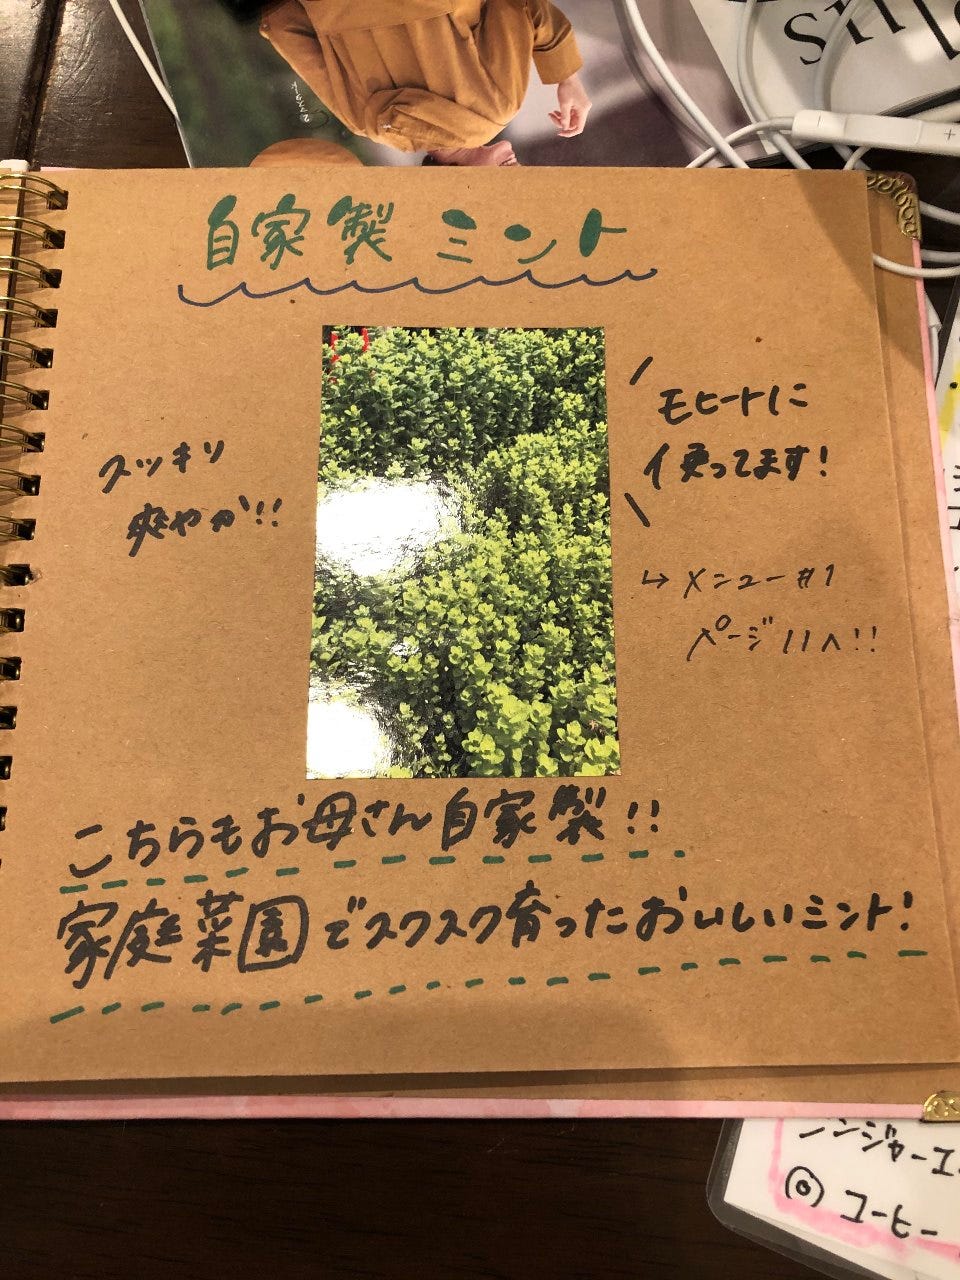 自家製 ミント
スッキリ
爽やか!!
モヒートに
使ってます!
→ メニュー#1
ページ11へ!!
こちらもお母さん自家製!!
家庭菜園でスクスク育ったおいしいミント!
ンジャーエ
◎ コーヒー